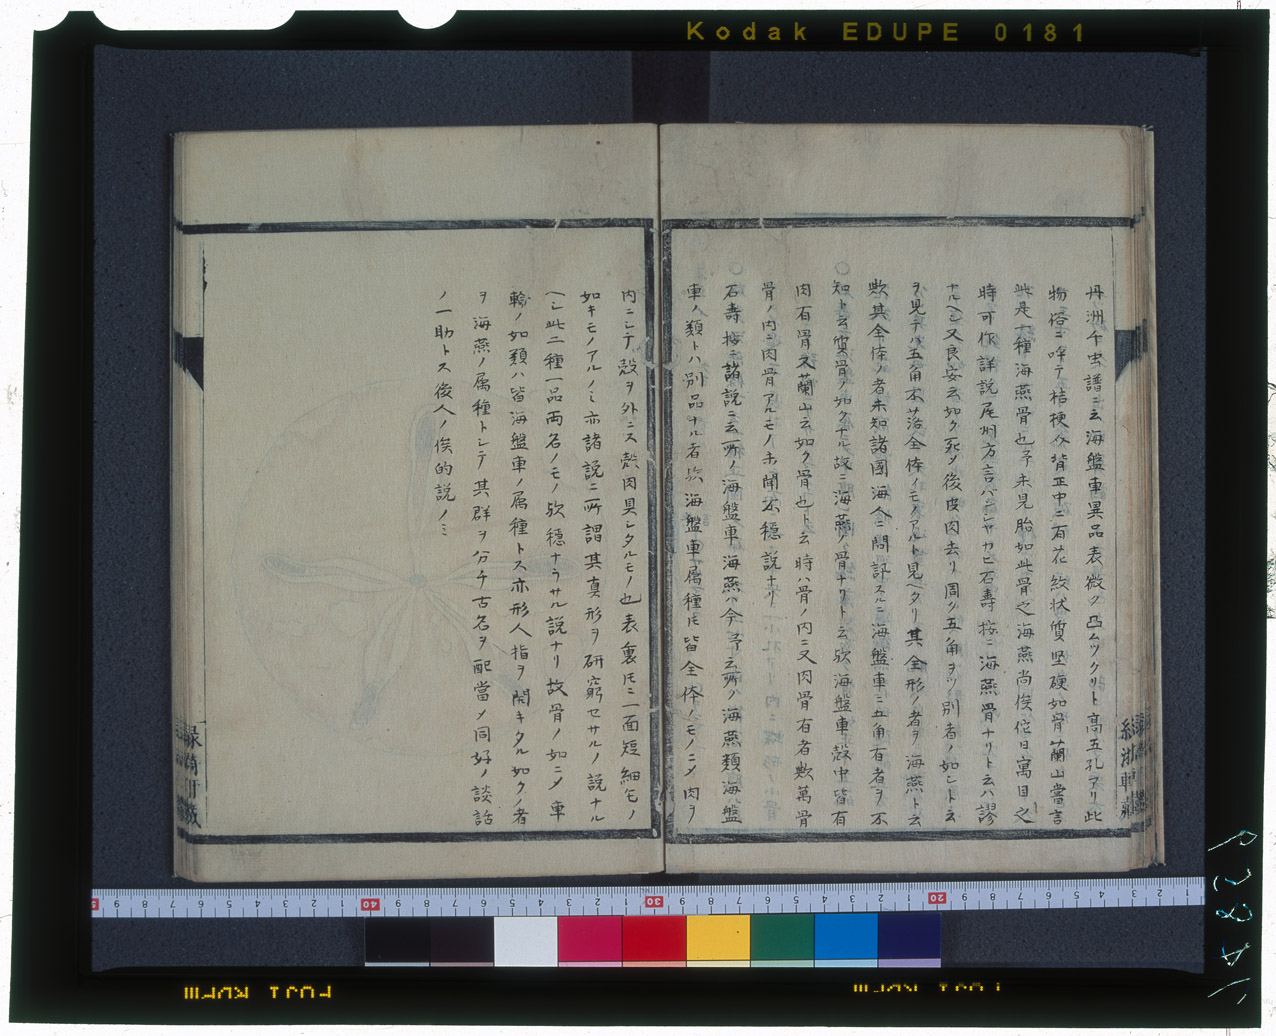 Kodak EDUPE 0181
丹洲千虫譜ニ云海盤車異品表微ク凸ムツクリト高五孔アリ此
物俗ニ呼テ桔梗貝背正中ニ有花紋状質堅硬如骨蘭山嘗言
此是一種海燕骨也予未見胎如此骨之海燕尚俟佗日寓目之
時可作詳説尾州方言バンジヤカヒ石壽按ニ海燕骨ナリト云ハ謬
ナルヘシ又良安云如ク死メ後皮肉去リ周ク五角ヲツ別者ノ如シト云
ヲ見テハ五角不落全体ノモノアルト見ヘタリ其全形ノ者ヲ海燕ト云
歟其全体ノ者未知諸國海人ニ問訂スルニ海盤車ニ五角有者ヲ不
知ト云質骨ノ如クナル故ニ海燕ノ骨ナリト云欤海盤車殻中皆有
肉有骨又蘭山云如ク骨也ト云時ハ骨ノ内ニ又肉骨有者歟萬骨
骨ノ内ニ肉骨アルモノ未聞不穏説ナリ
石壽按ニ諸説ニ云所ノ海盤車海燕ハ今予云所ノ海燕類海盤
車ノ類トハ別品ナル者欤海盤車属種ﾓ皆全体ノモノニメ肉ヲ
内ニシテ殻ヲ外ニス殻肉具シタルモノ也表裏ﾓニ面短細毛ノ
如キモノアルノミ亦諸説ニ所謂其真形ヲ研窮セサルノ説ナル
ヘシ此二種一品両名ノモノ欤穏ナラサル説ナリ故骨ノ如ニメ車
輪ノ如類ハ皆海盤車ノ属種トス亦形人指ヲ開キタル如クノ者
ヲ海燕ノ属種トシテ其群ヲ分チ古名ヲ配當メ同好ノ談話
ノ一助トス後人ノ俟的説ノミ